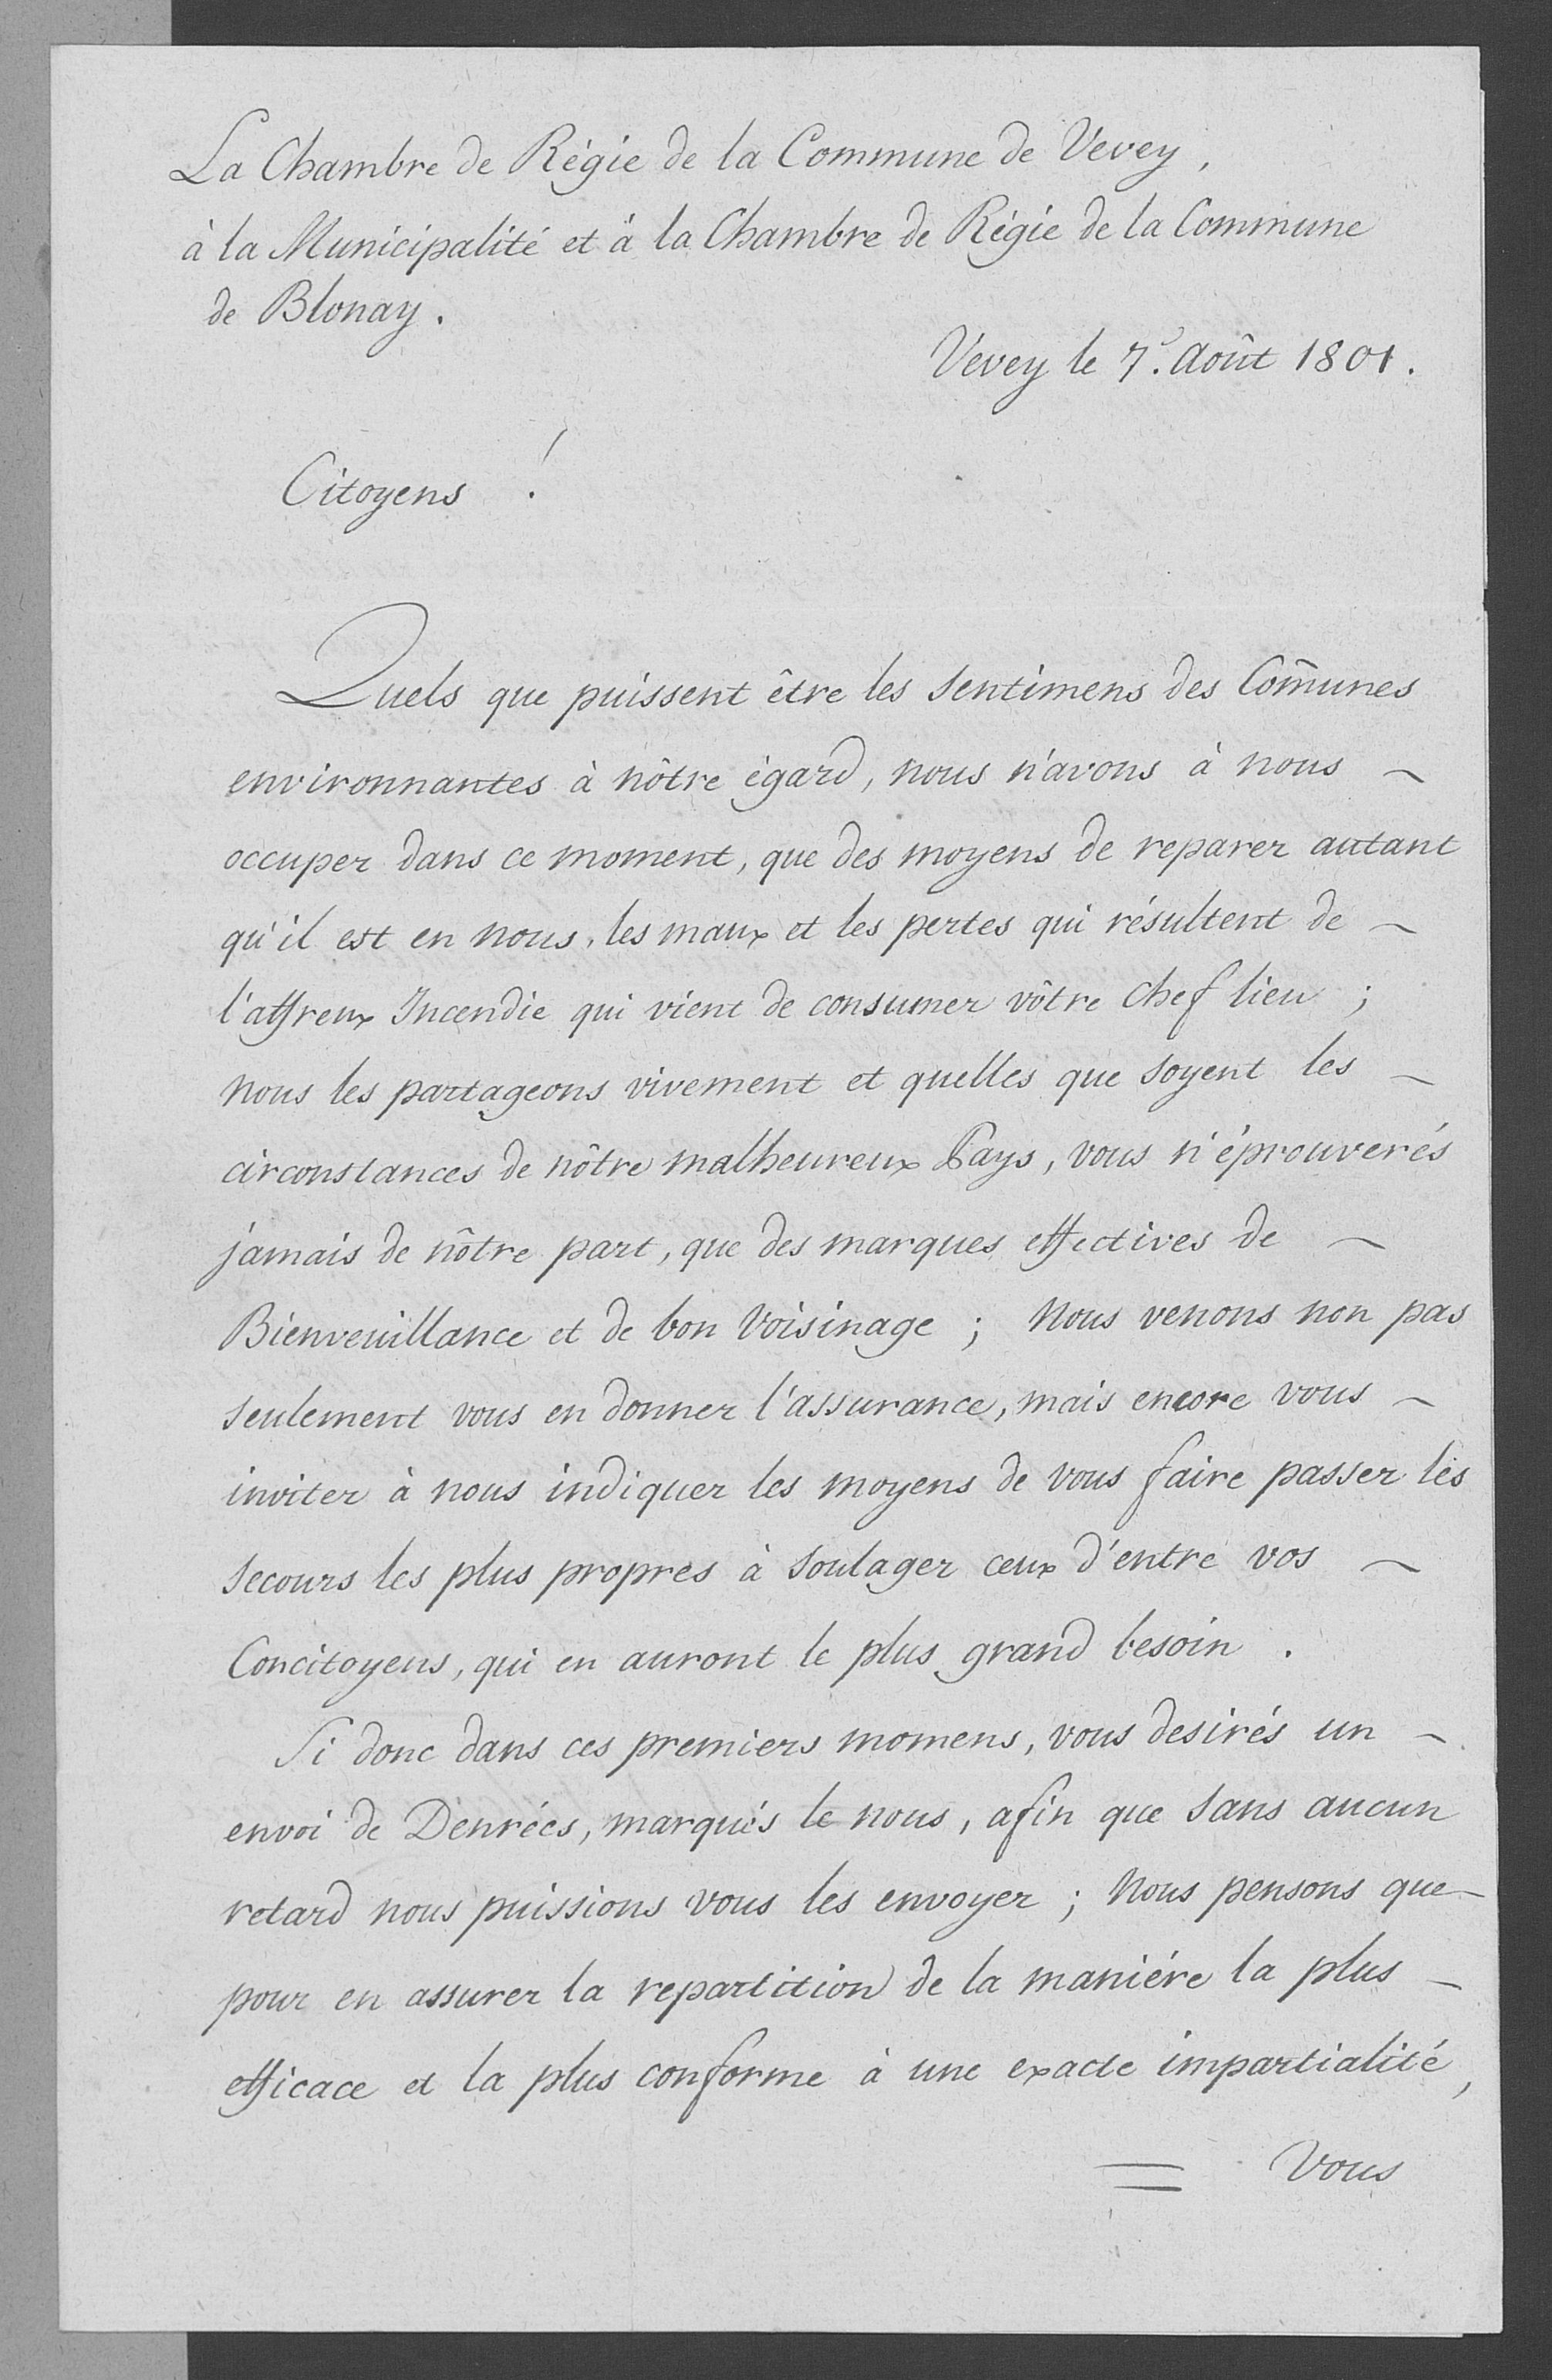 La Chambre de Régie de la Commune de Vevey,
à la Municipalité et à la Chambre de Régie de la Commune
de Blonay.
Vevey le 7e. Août 1801.
Citoyens !
Quels que puissent être les sentimens des Com̄unes
environnantes à nôtre égard, nous n'avons à nous ~
occuper dans ce moment, que des moyens de reparer autant
qu'il est en nous, les maux et les pertes qui résultent de ~
l'affreux Incendie qui vient de consumer vôtre Chef lieu ;
nous les partageons vivement et quelles que soyent les ~
circonstances de nôtre malheureux Pays, vous n'éprouverés
jamais de nôtre part, que des marques effectives de ~
Bienveuillance et de bon Voisinage ; Nous venons non pas
seulement vous en donner l'assurance, mais encore vous ~
inviter à nous indiquer les moyens de vous faire passer les
secours les plus propres à soulager ceux d'entre vos ~
Concitoyens, qui en auront le plus grand besoin .
Si donc dans ces premiers momens, vous desirés un ~
envoi de Denrées, marqués le nous, afin que sans aucun
retard nous puissions vous les envoyer ; Nous pensons que ~
pour en assurer la repartition de la maniére la plus ~
efficace et la plus conforme à une exacte impartialité,
= Vous